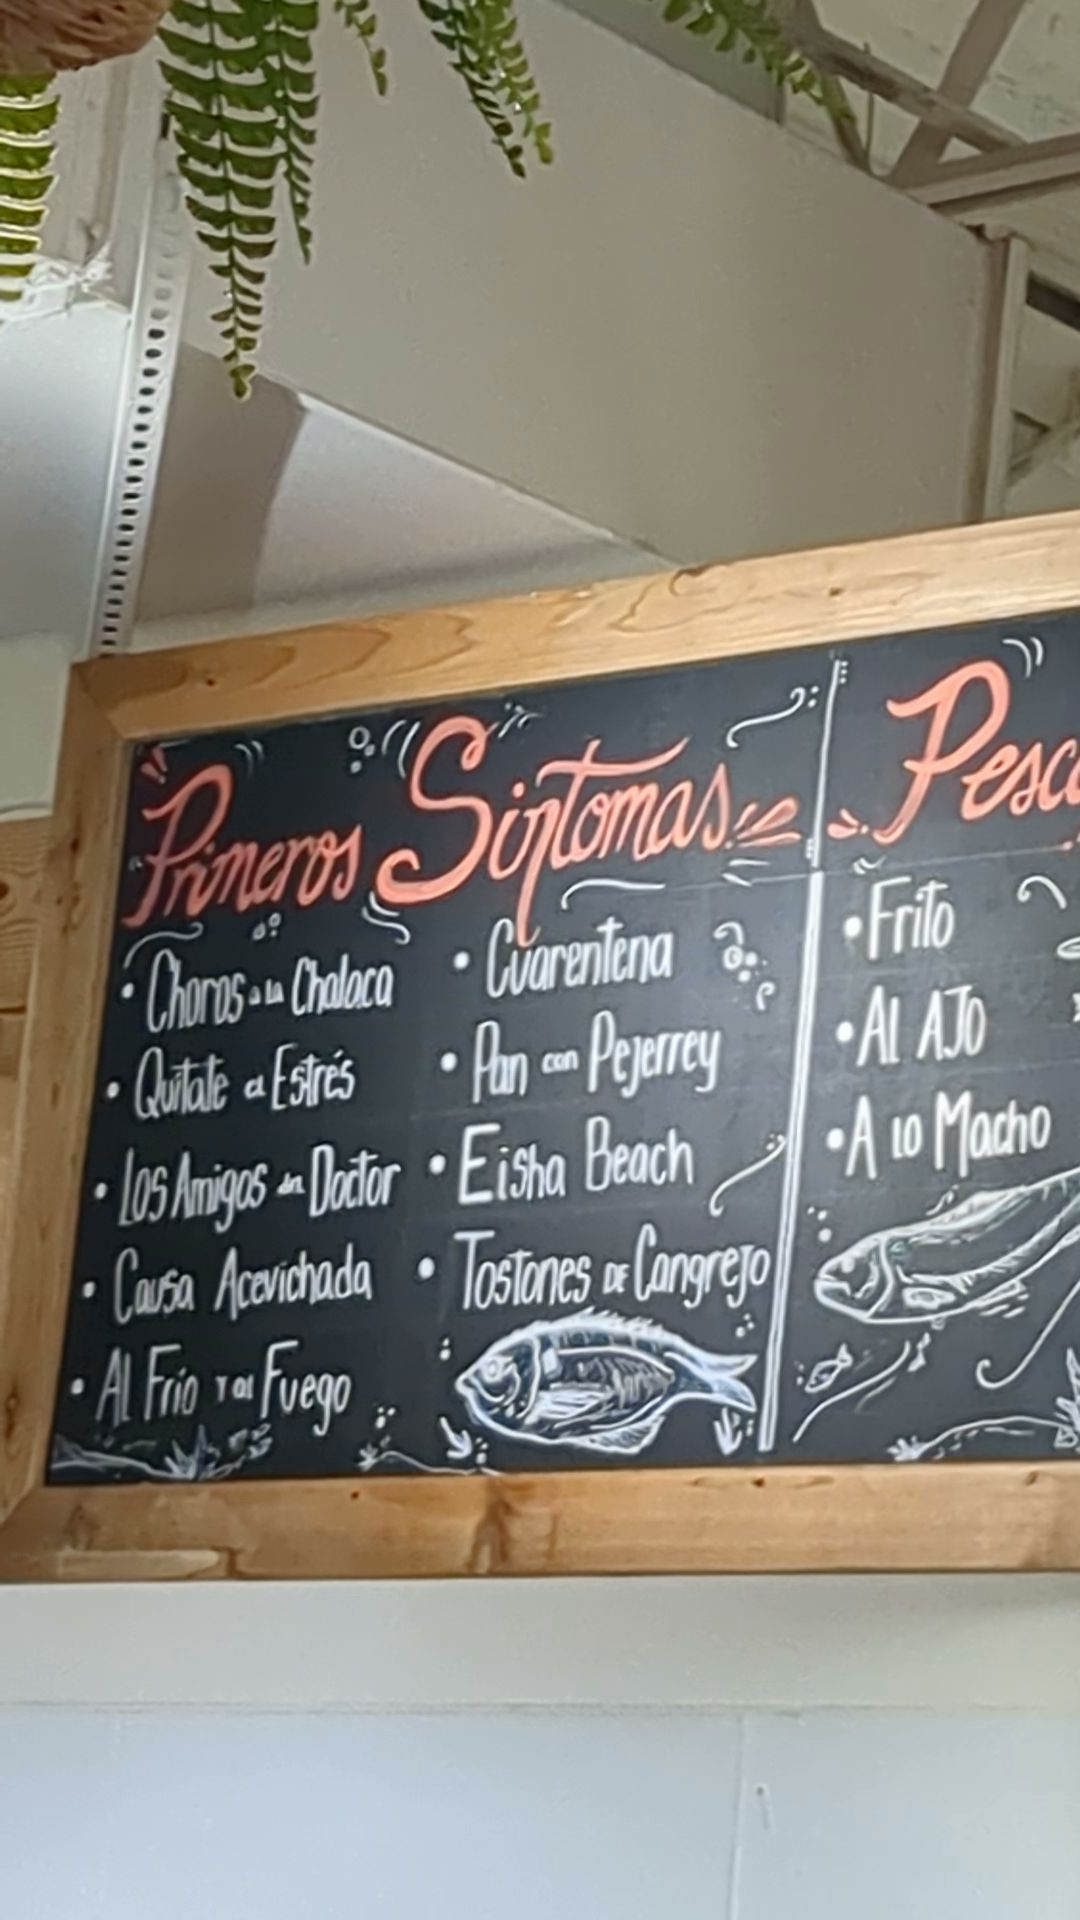 Primeros Síntomas
• Choros a la Chalaca
• Quítate el Estrés
• Los Amigos del Doctor
• Causa Acevichada
• Al Frío y al Fuego
• Cuarentena
• Pan con Pejerrey
• Eisha Beach
• Tostones DE Cangrejo
Pesca
• Frito
• Al AJo
• A lo Macho